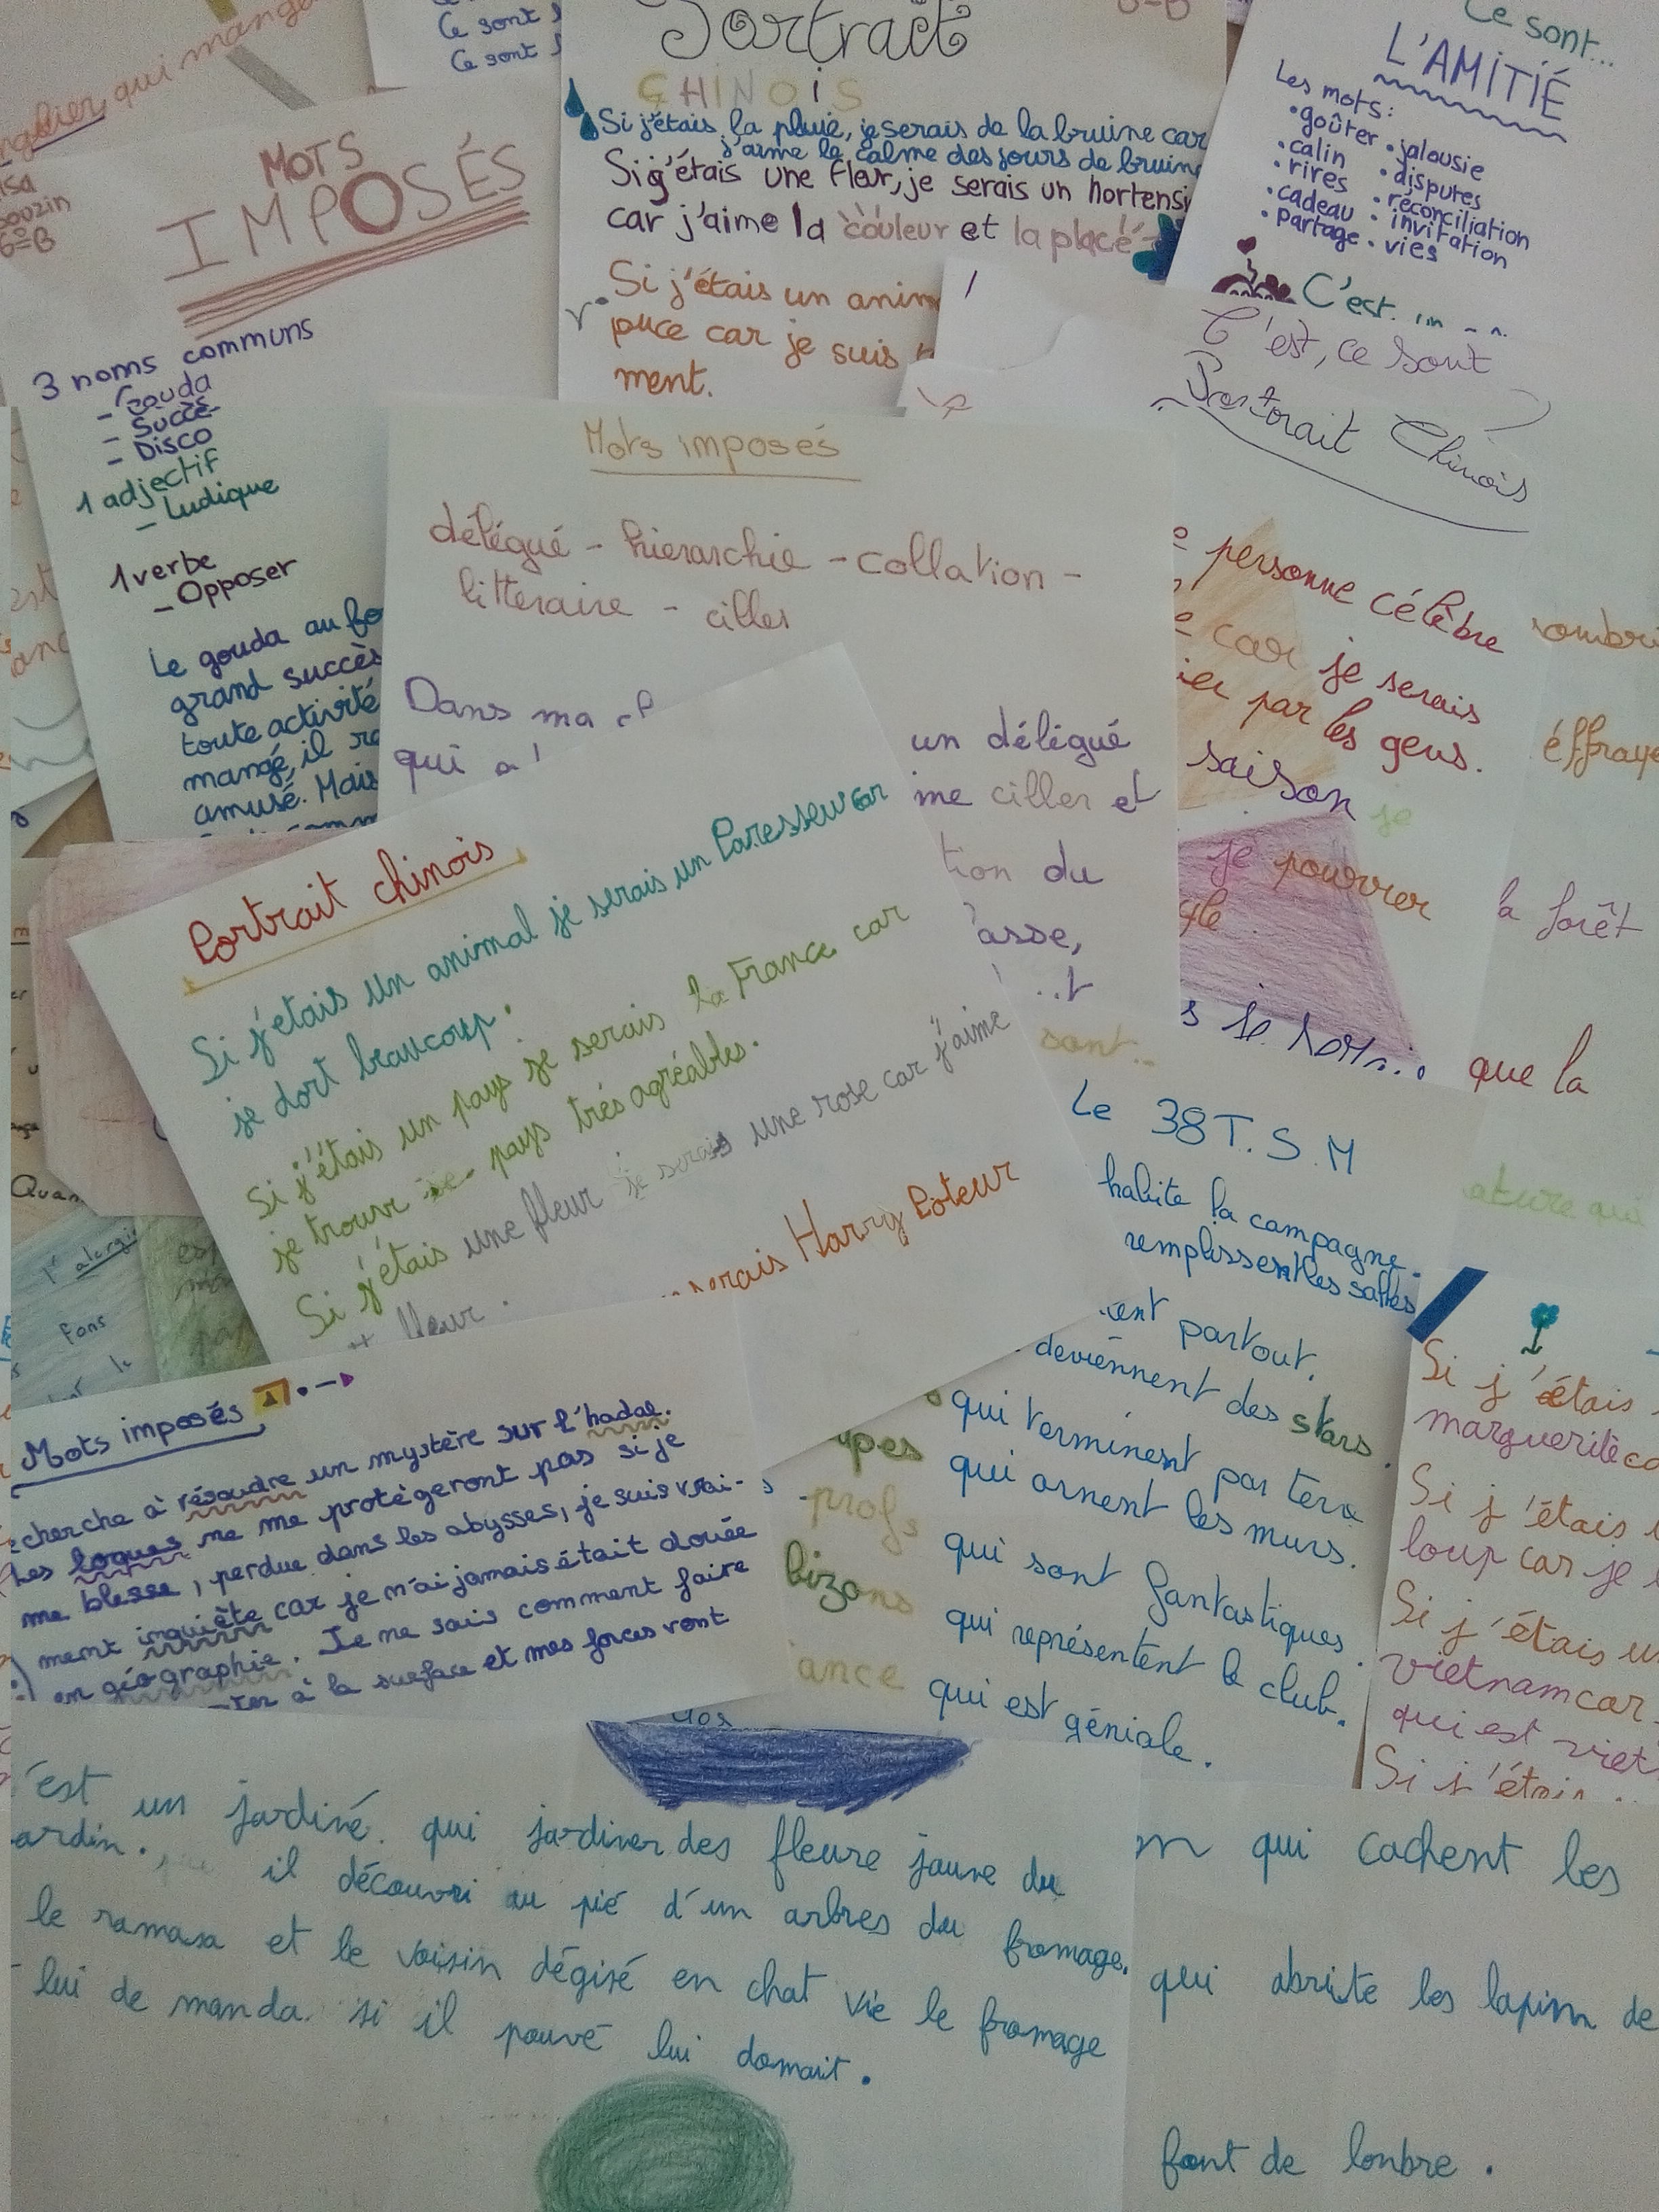 qui mange
Ce sont
Ce sont
MOTS
IMPOSÉS
3 noms communs
- Gouda
- Succès
- Disco
1 adjectif
- Ludique
1 verbe
- Opposer
Le gouda au
grand succès
toute activité
mangé, il
amusé. Mais
Portrait
CHINOIS
Si j'étais la pluie, je serais de la bruine car
j'aime le calme des jours de bruine
Si j'étais une fleur, je serais un hortensi
car j'aime la couleur et la place
Si j'étais un anim
puce car je suis
ment.
Ce sont...
L'AMITIÉ
Les mots:
• goûter • jalousie
• calin • disputes
• rires • réconciliation
• cadeau • invitation
• partage • vies
C'est
C'est, ce sont
Portrait Chinois
personne célèbre
car je serais
par les gens.
saison je
je pourrer
sombre
éffraye
la forêt
que la
ature qui
Mots imposés
délégué - hierarchie - collation -
litteraire - ciller
Dans ma
qui a
un délégué
me ciller et
tion du
asse,
Portrait chinois
Si j'etais un animal je serais un Paresseur car
je dort beaucoup.
Si j'étais un pays je serais la France car
je trouve pays très agréables.
Si j'étais une fleur je serais une rose car j'aime
fleur.
serais Harry Poteur
sont...
Le 38 T.S.M
habite la campagne.
remplissent les salles
ent partout.
deviennent des stars.
qui terminent par terre
qui ornent les murs.
qui sont fantastiques.
qui représentent le club.
qui est géniale.
ypes
profs
bizons
ance
Quan
Fons
Mots imposés
cherche à résoudre un mystère sur l'hadal.
Les loques ne me protègeront pas si je
me blesse, perdue dans les abysses, je suis vrai-
ment inquiète car je n'ai jamais était douée
en géographie. Je ne sais comment faire
ter à la surface et mes forces vont
Si j'étais
marguerite ca
Si j'étais
loup car je
Si j'étais un
vietnam car
qui est viet
Si j'étais
'est un jardiné qui jardiner des fleure jaune du
ardin. il découvri au pié d'un arbres du fromage.
le ramasa et le voisin dégisé en chat vie le fromage
lui de manda si il pouvé lui domait.
qui cachent les
qui abrite les lapin de
font de lonbre.